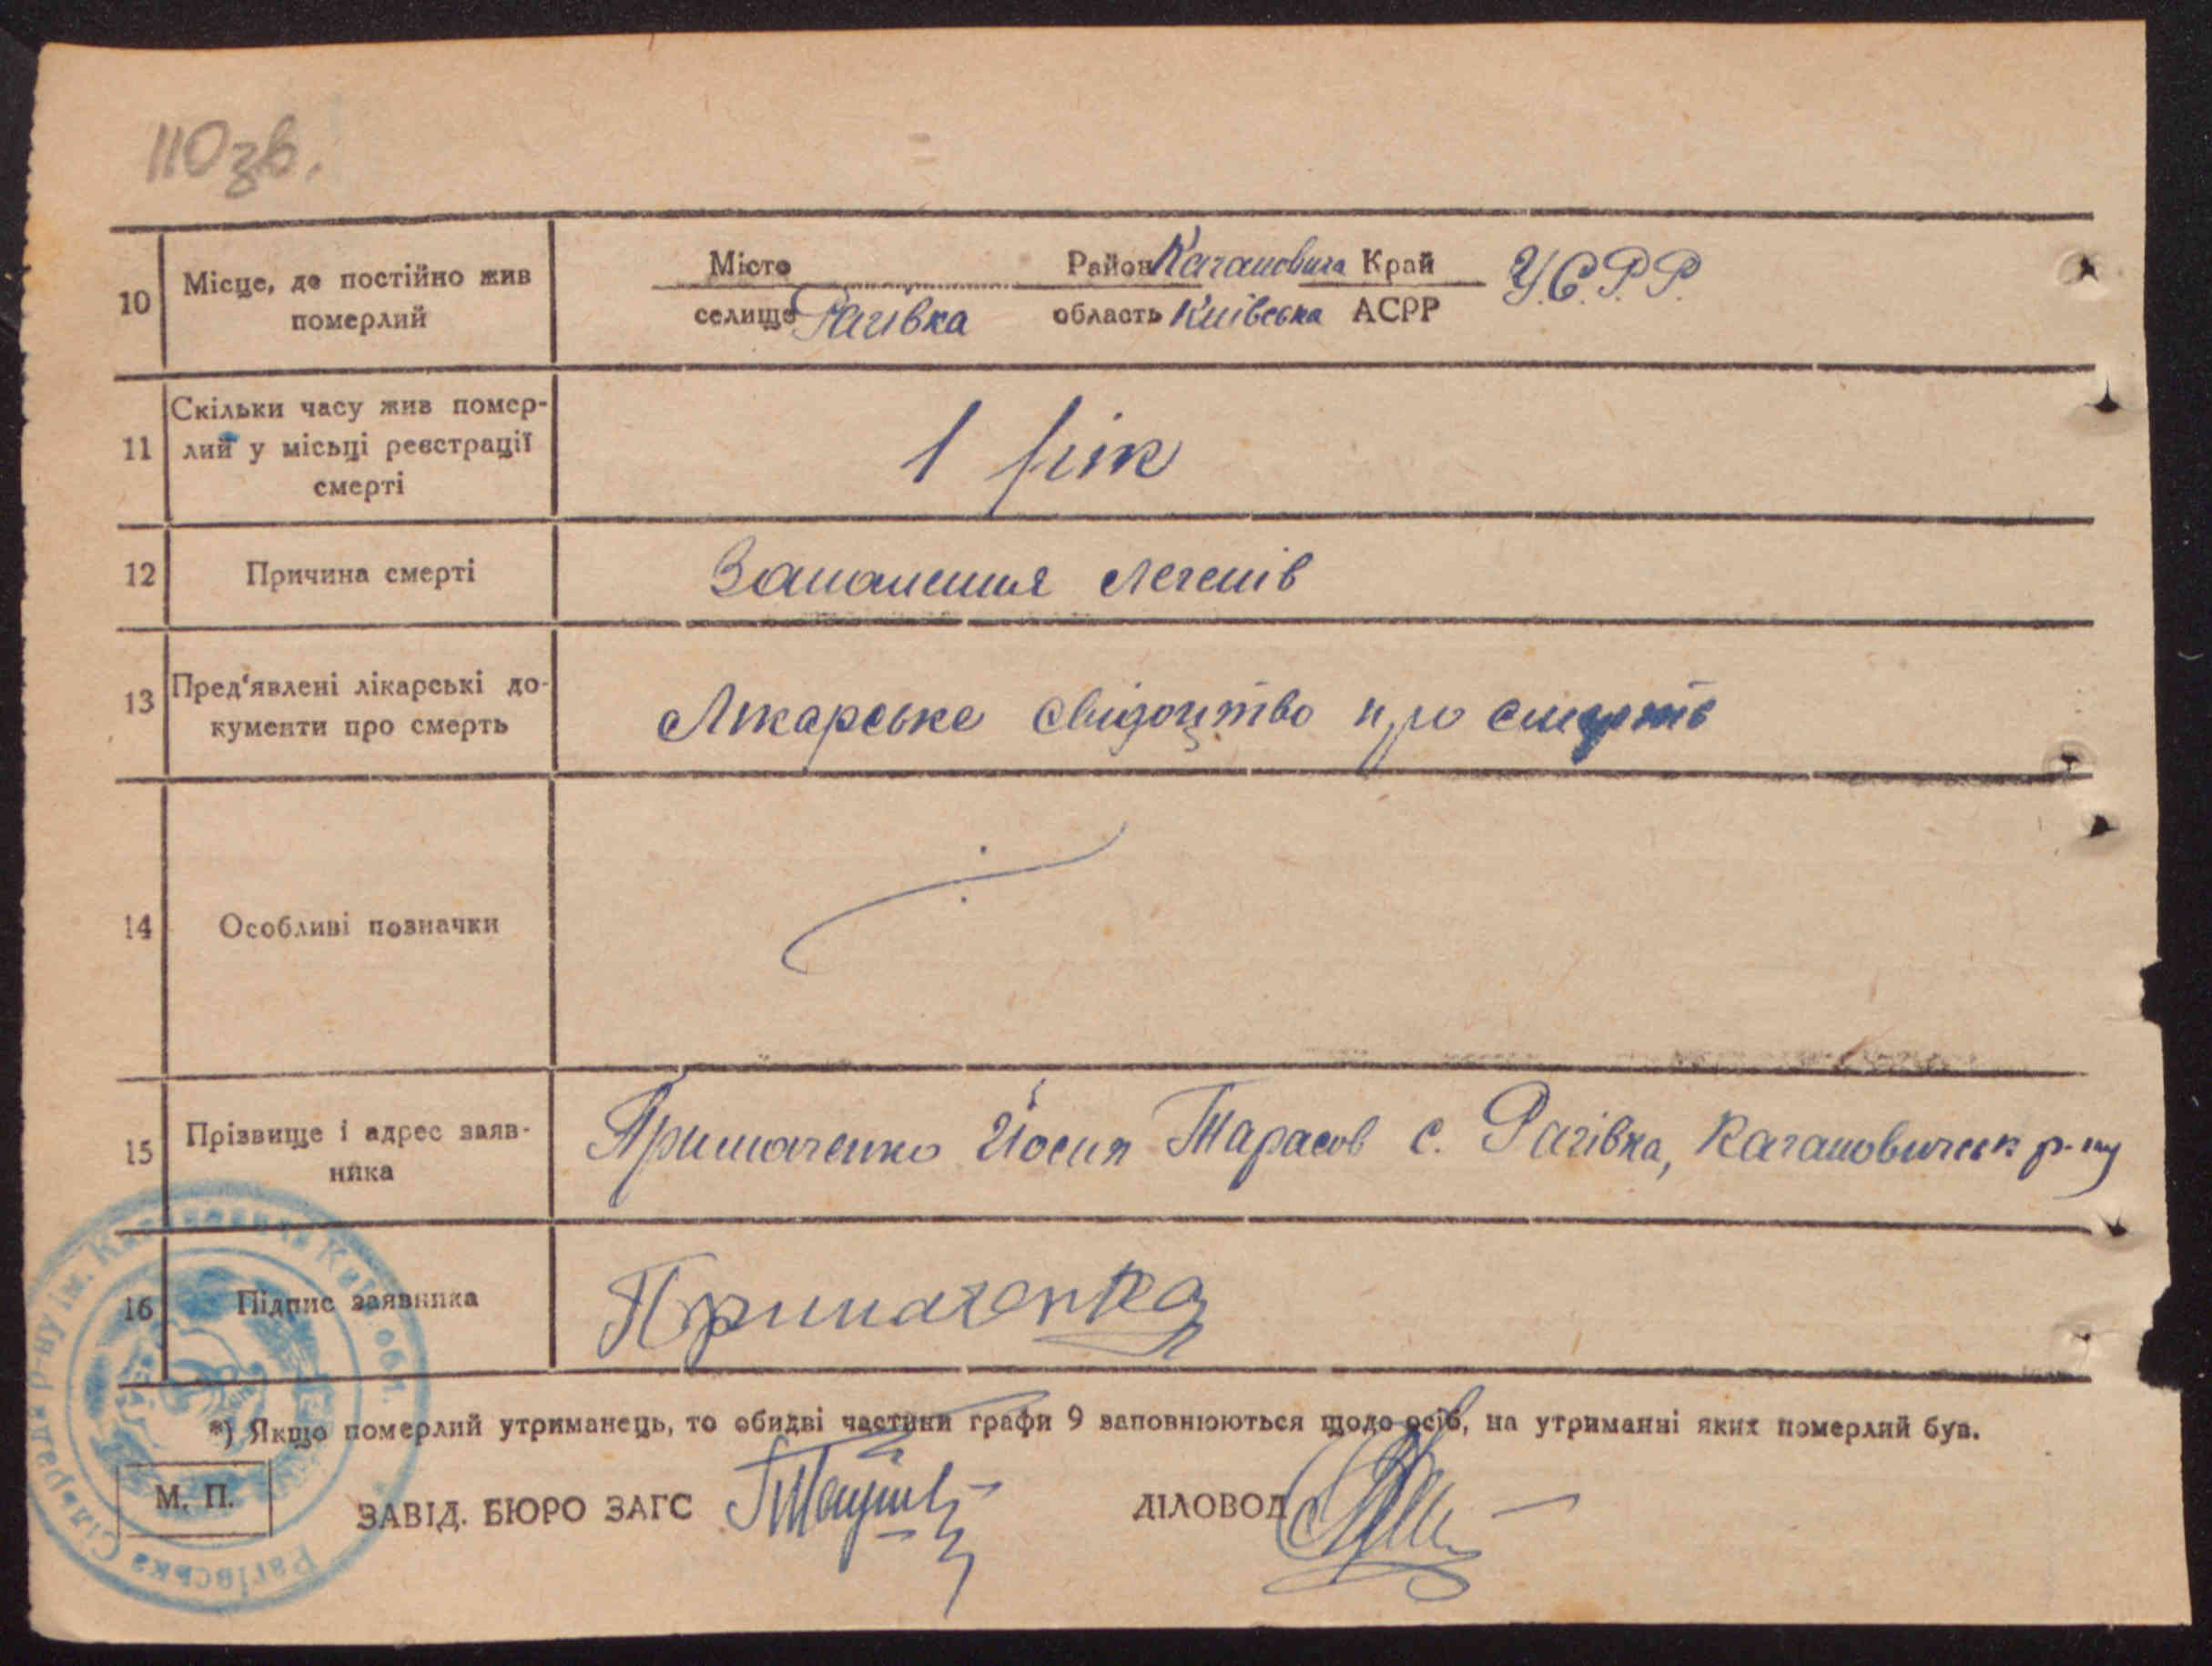 110 зв.
10 Місце, де постійно жив померлий
Місто Район Кагановича Край У.С.Р.Р.
селище Рагівка область Київська АСРР
11 Скільки часу жив помер-
лий у місьці реєстрації
смерті
1 рік
12 Причина смерті Запалення легенів
13 Пред'явлені лікарські до-
кументи про смерть
Лікарське свідоцтво про смерть
14 Особливі позначки
15 Прізвище і адрес заяв-
ника
Примаченко Йосип Тарасов с. Рагівка, Кагановическ р-ну
16 Підпис заявника Примаченко
*) Якщо померлий утриманець, то обидві частини графи 9 заповнюються щодо осіб, на утриманні яких померлий був.
М. П. ЗАВІД. БЮРО ЗАГС ДІЛОВОД
Рагівська Сільрада р-ну ім. Кагановича Київ. обл.